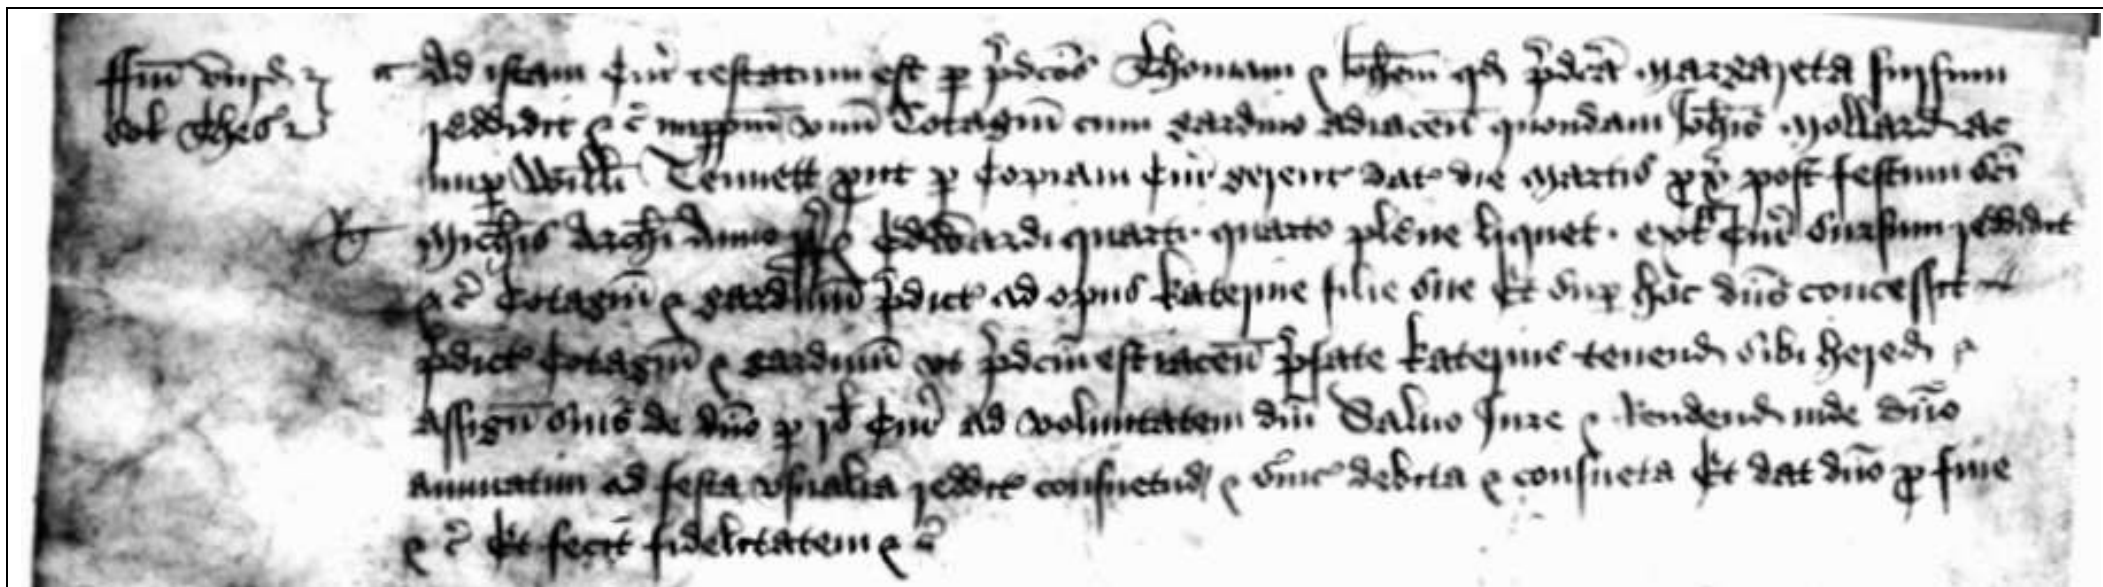 Ad istam Cur̄ testatum est p p̄dcōs Thomam & Joh̄em qd p̄dca Margareta sursum
reddidit &c̄ nup̄ vnū Cotagiū cum gardino adiacen̄ quondam Joh̄is Mollard ac
nup Willi Tennett put p Copiam Cur̄ gerent̄ dat̄ die Martis px̄ post festum sc̄i
Mich̄is Arch̄i Anno E Edwardi quarti quarto plene liquet Cur̄ sursum reddidit
&c̄ Cotagiū & gardinū p̄dict̄ ad opus Katerine filie sue Et sup hoc dn̄s concessit
p̄dict̄ Cotagiū & gardinū vt p̄dcm̄ est iacen̄ p̄fate Katerine tenend sibi hered &
assign̄ suis de dn̄o p Cur̄ ad voluntatem dn̄i Saluo Jure & Tendend inde dn̄o
annuatim ad festa vsualia reddit̄ consuetud & s̄uic̄ debita & consueta Et dat dn̄o p fine
&c̄ Et fecit fidelitatem &c̄